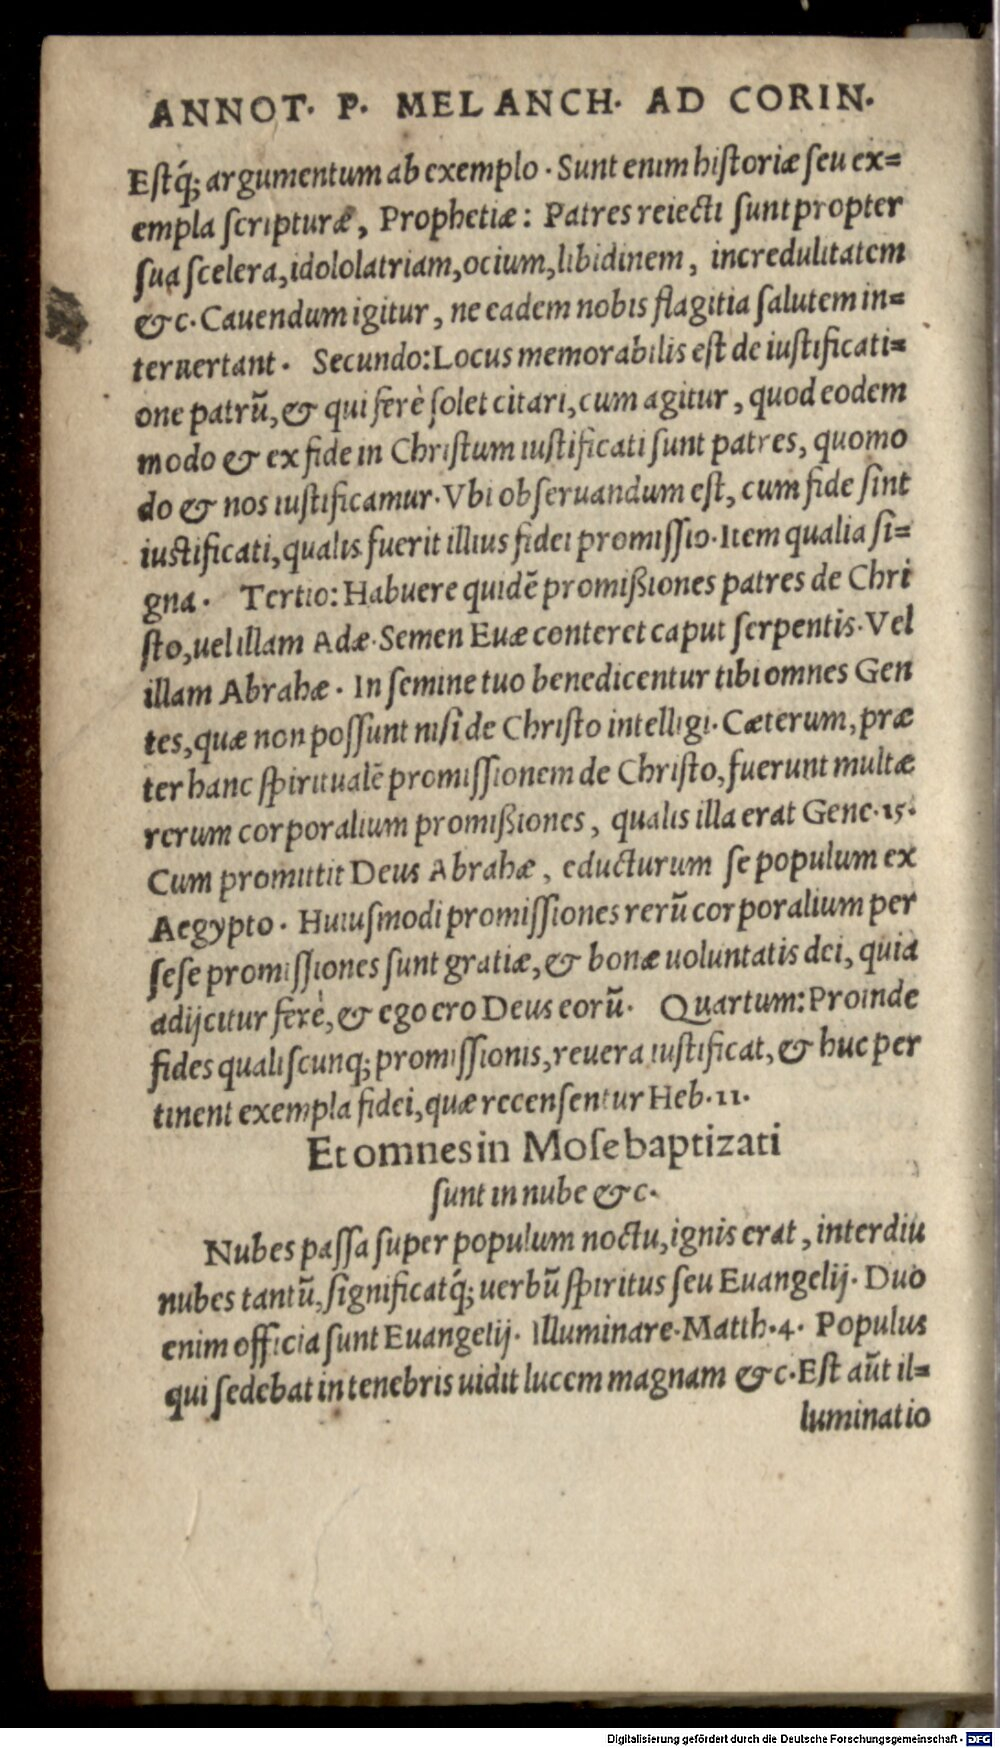 ANNOT. P. MELANCH. AD CORIN.
Estq́; argumentum ab exemplo. Sunt enim historiæ seu ex=
empla scripturæ, Prophetiæ: Patres reiecti sunt propter
sua scelera, idololatriam, ocium, libidinem, incredulitatem
&c. Cauendum igitur, ne eadem nobis flagitia salutem in=
teruertant. Secundo: Locus memorabilis est de iustificati=
one patrū, & qui ferè solet citari, cum agitur, quod eodem
modo & ex fide in Christum iustificati sunt patres, quomo
do & nos iustificamur. Vbi obseruandum est, cum fide sint
iustificati, qualis fuerit illius fidei promissio. Item qualia si=
gna. Tertio: Habuere quidē promißiones patres de Chri
sto, uel illam Adæ. Semen Euæ conteret caput serpentis. Vel
illam Abrahæ. In semine tuo benedicentur tibi omnes Gen
tes, quæ non possunt nisi de Christo intelligi. Cæterum, præ
ter hanc spiritualē promissionem de Christo, fuerunt multæ
rerum corporalium promißiones, qualis illa erat Gene. 15.
Cum promittit Deus Abrahæ, educturum se populum ex
Aegypto. Huiusmodi promissiones rerū corporalium per
sese promissiones sunt gratiæ, & bonæ uoluntatis dei, quia
adijcitur ferè, & ego ero Deus eorū. Quartum: Proinde
fides qualiscunq; promissionis, reuera iustificat, & huc per
tinent exempla fidei, quæ recensentur Heb. 11.
Et omnes in Mose baptizati
sunt in nube &c.
Nubes passa super populum noctu, ignis erat, interdiu
nubes tantū, significatq́; uerbū spiritus seu Euangelij. Duo
enim officia sunt Euangelij. Illuminare. Matth. 4. Populus
qui sedebat in tenebris uidit lucem magnam &c. Est aūt il=
luminatio
Digitalisierung gefördert durch die Deutsche Forschungsgemeinschaft - DFG